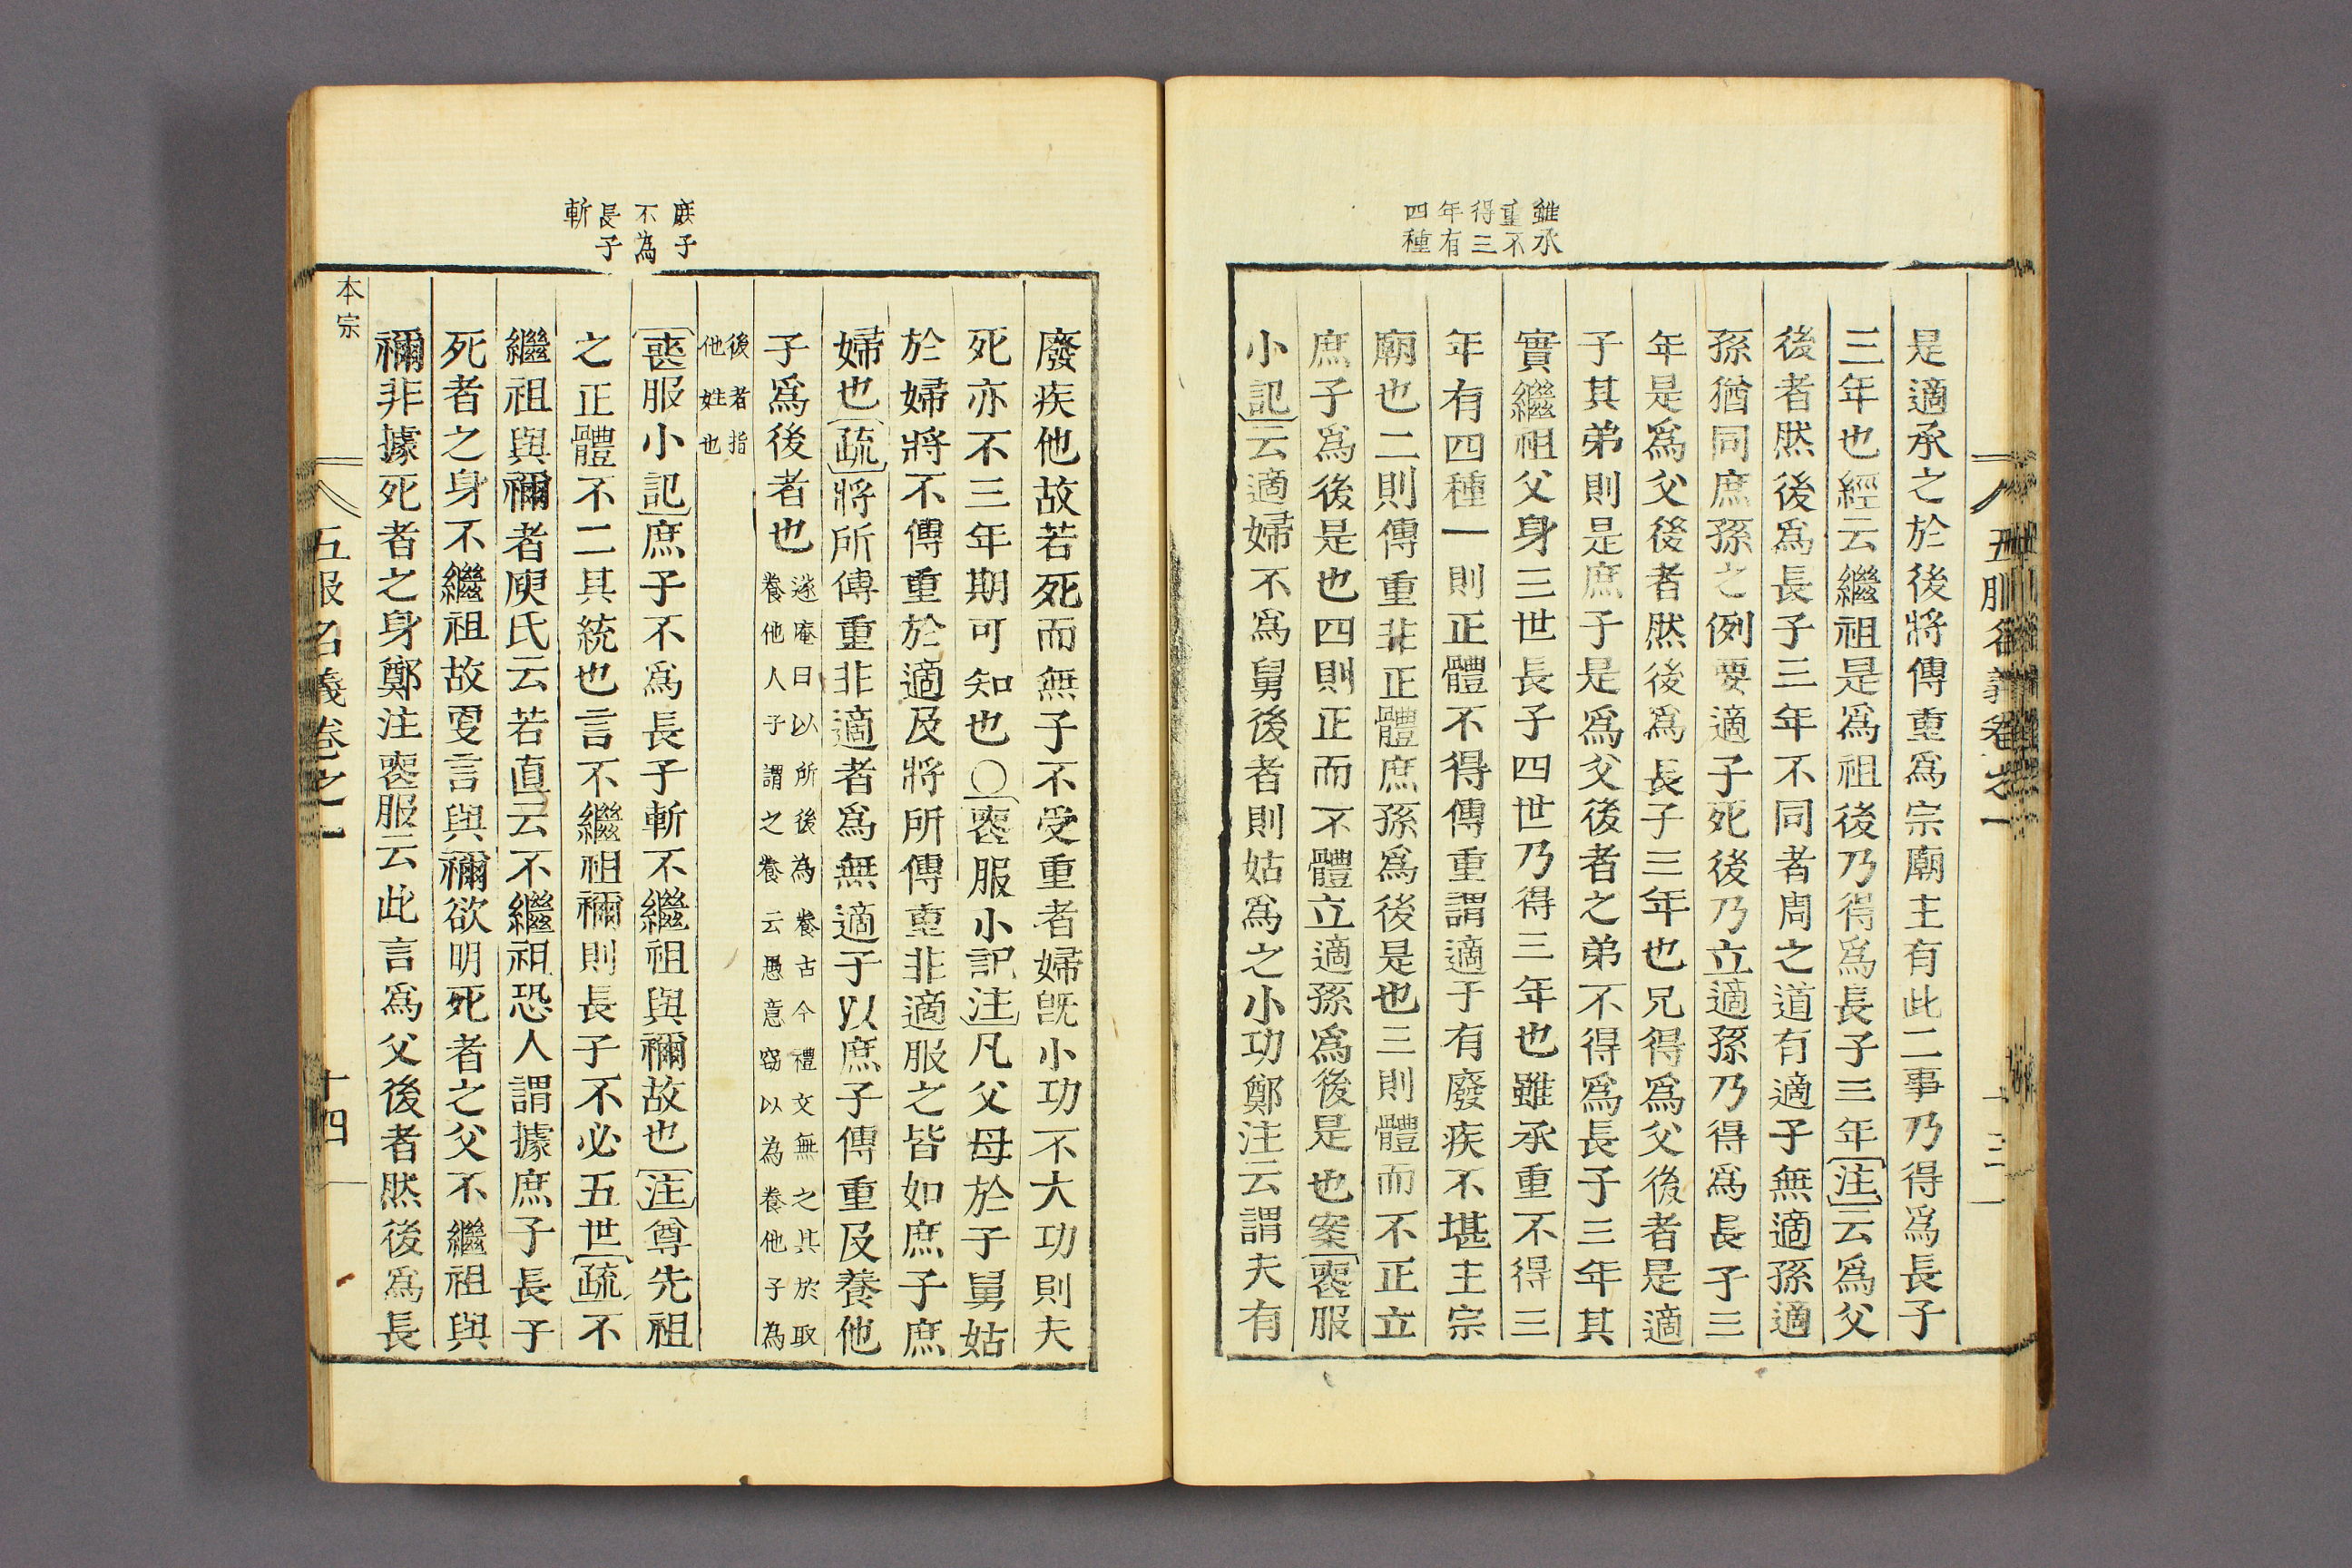 雖承
重不
得三
年有
四種
五服名義卷之一
十三
是適承之於後將傳重爲宗廟主有此二事乃得爲長子
三年也經云繼祖是爲祖後乃得爲長子三年注云爲父
後者然後爲長子三年不同者周之道有適子無適孫適
孫猶同庶孫之例要適子死後乃立適孫乃得爲長子三
年是爲父後者然後爲長子三年也兄得爲父後者是適
子其弟則是庶子是爲父後者之弟不得爲長子三年其
實繼祖父身三世長子四世乃得三年也雖承重不得三
年有四種一則正體不得傳重謂適子有廢疾不堪主宗
廟也二則傳重非正體庶孫爲後是也三則體而不正立
庶子爲後是也四則正而不體立適孫爲後是也案喪服
小記云適婦不爲舅後者則姑爲之小功鄭注云謂夫有
庶子
不為
長子
斬
廢疾他故若死而無子不受重者婦旣小功不大功則夫
死亦不三年期可知也○喪服小記注凡父母於子舅姑
於婦將不傳重於適及將所傳重非適服之皆如庶子庶
婦也疏將所傳重非適者爲無適子以庶子傳重及養他
子爲後者也遂庵曰以所後為養古今禮文無之其於取
養他人子謂之養云愚意窃以為養他子為
後者指
他姓也
喪服小記庶子不爲長子斬不繼祖與禰故也注尊先祖
之正體不二其統也言不繼祖禰則長子不必五世疏不
繼祖與禰者庾氏云若直云不繼祖恐人謂據庶子長子
死者之身不繼祖故更言與禰欲明死者之父不繼祖與
禰非據死者之身鄭注喪服云此言爲父後者然後爲長
本宗
五服名義卷之一
十四